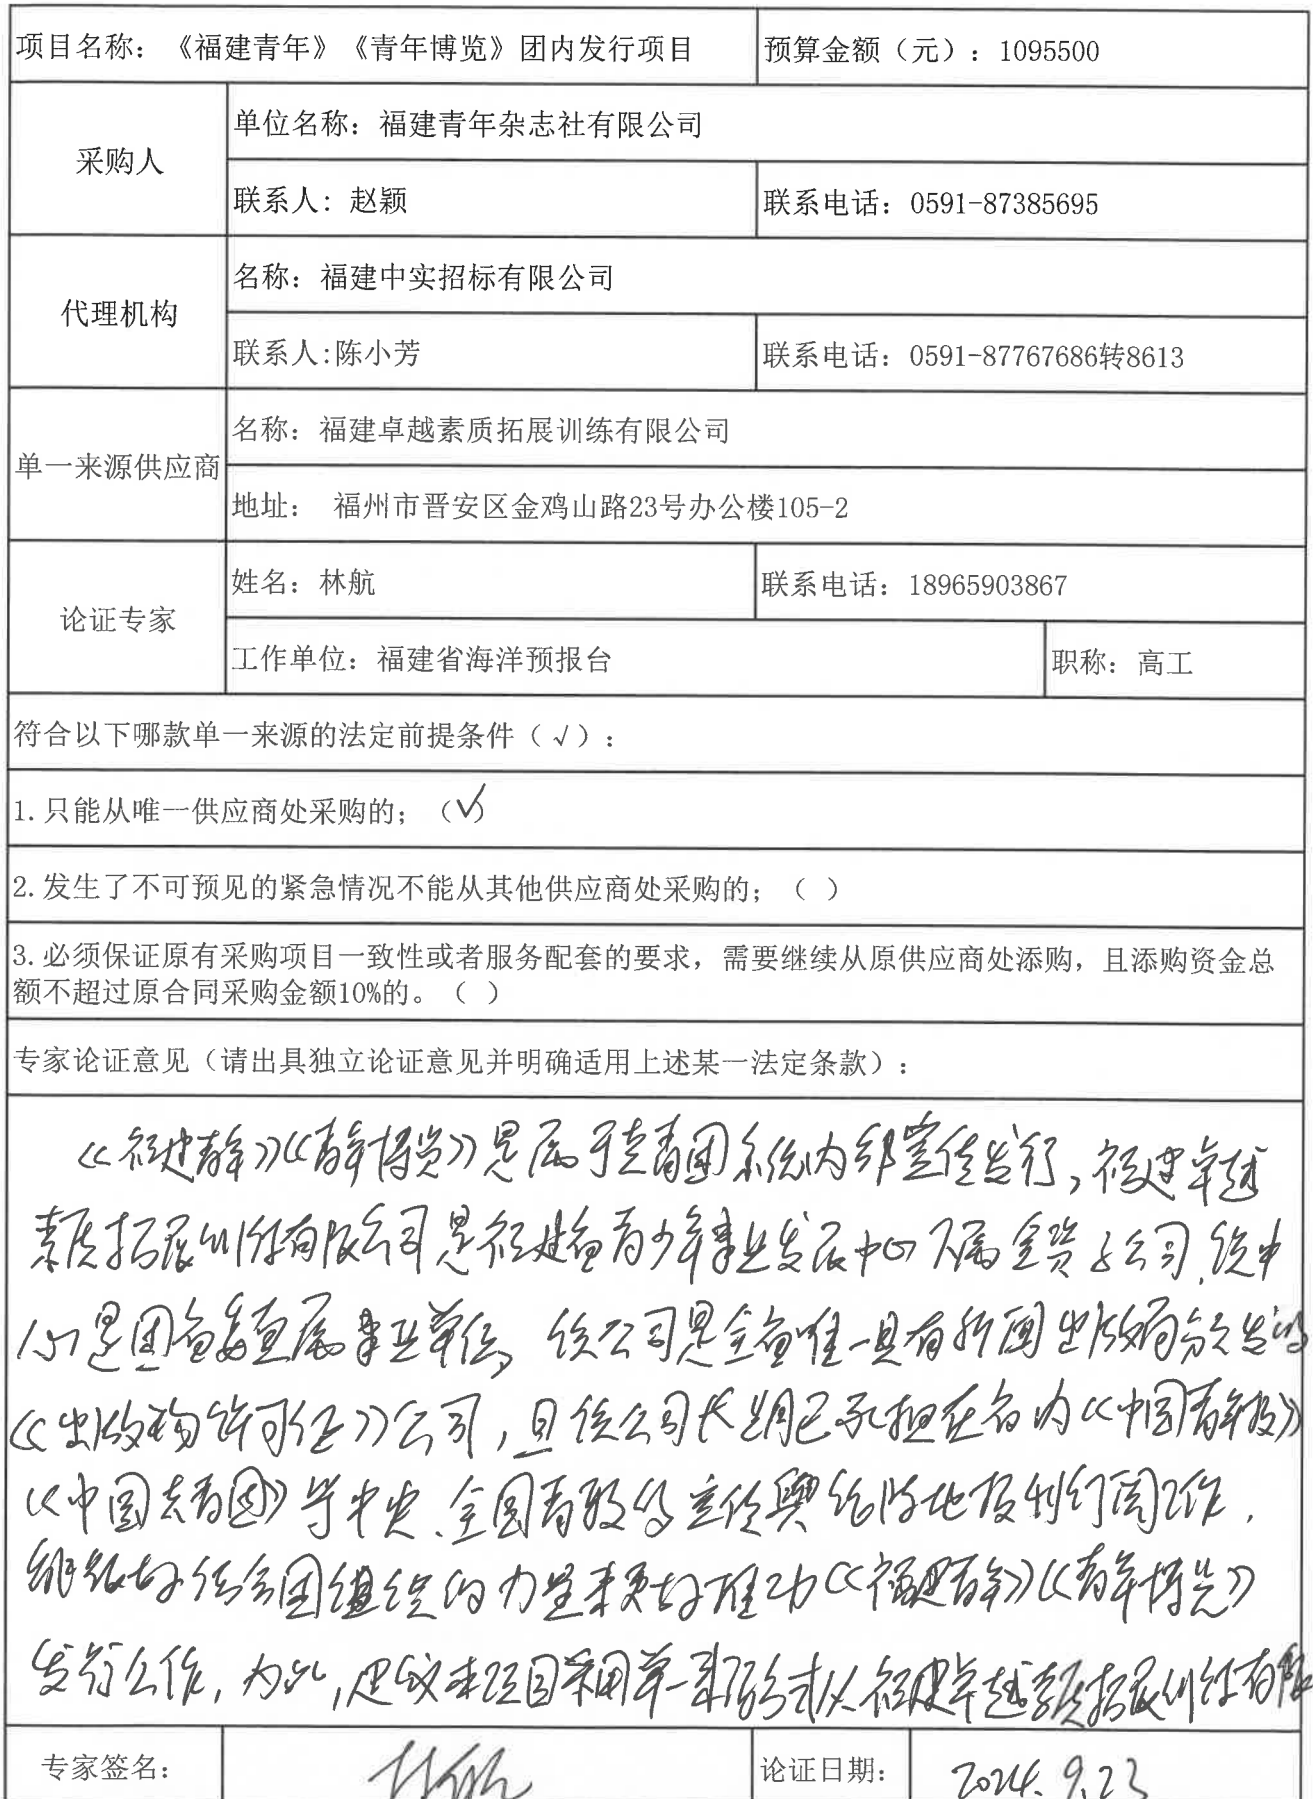 项目名称：《福建青年》《青年博览》团内发行项目
预算金额（元）：1095500
采购人
单位名称：福建青年杂志社有限公司
联系人：赵颖
联系电话：0591-87385695
代理机构
名称：福建中实招标有限公司
联系人:陈小芳
联系电话：0591-87767686转8613
单一来源供应商
名称：福建卓越素质拓展训练有限公司
地址： 福州市晋安区金鸡山路23号办公楼105-2
论证专家
姓名：林航
联系电话：18965903867
工作单位：福建省海洋预报台
职称：高工
符合以下哪款单一来源的法定前提条件（√）：
1.只能从唯一供应商处采购的；（✓）
2.发生了不可预见的紧急情况不能从其他供应商处采购的；（ ）
3.必须保证原有采购项目一致性或者服务配套的要求，需要继续从原供应商处添购，且添购资金总
额不超过原合同采购金额10%的。（ ）
专家论证意见（请出具独立论证意见并明确适用上述某一法定条款）：
《福建青年》《青年博览》是属于共青团系统内部宣传发行，福建卓越
素质拓展训练有限公司是福建省青少年事业发展中心下属全资子公司，该中
心是团省委直属事业单位，该公司是全省唯一具有新闻出版局分发的
《出版物许可证》公司，且该公司长期已承担在省内《中国青年报》
《中国共青团》等中央、全国有影的宣传舆论阵地报刊订阅工作，
能较好结合团组织的力量来更好推动《福建青年》《青年博览》
发行工作，为此，建议本项目采用单一来源形式从福建卓越素质拓展训练有限
专家签名：
林航
论证日期：
2024.9.23